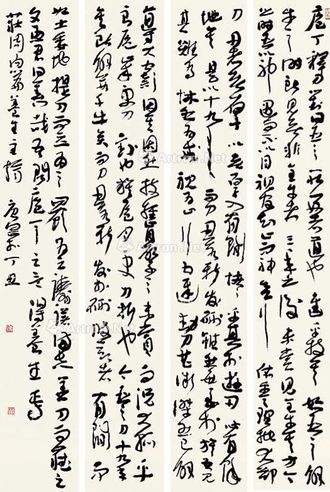 庖丁釋刀對曰臣之所好者道也進乎技矣始臣之
解牛之時所見無非全牛者三年之後未嘗見全牛也方今
之時臣以神遇而不以目視官知止而神欲行依乎天理批大郤
導大窾因其固然技經肯綮之未嘗而況大軱乎
良庖歲更刀割也族庖月更刀折也今臣之刀十九年
矣所解數千牛矣而刀刃若新發於硎彼節者有間而
刀刃者無厚以無厚入有間恢恢乎其於遊刃必有餘
地矣是以十九年而刀刃若新發於硎雖然每至於族吾見
其難為怵然為戒視為止行為遲動刀甚微謋然已解
如土委地提刀而立為之四顧為之躊躇滿志善刀而藏之
文惠君曰善哉吾聞庖丁之言得養生焉
莊周內篇養生主摘 丁丑